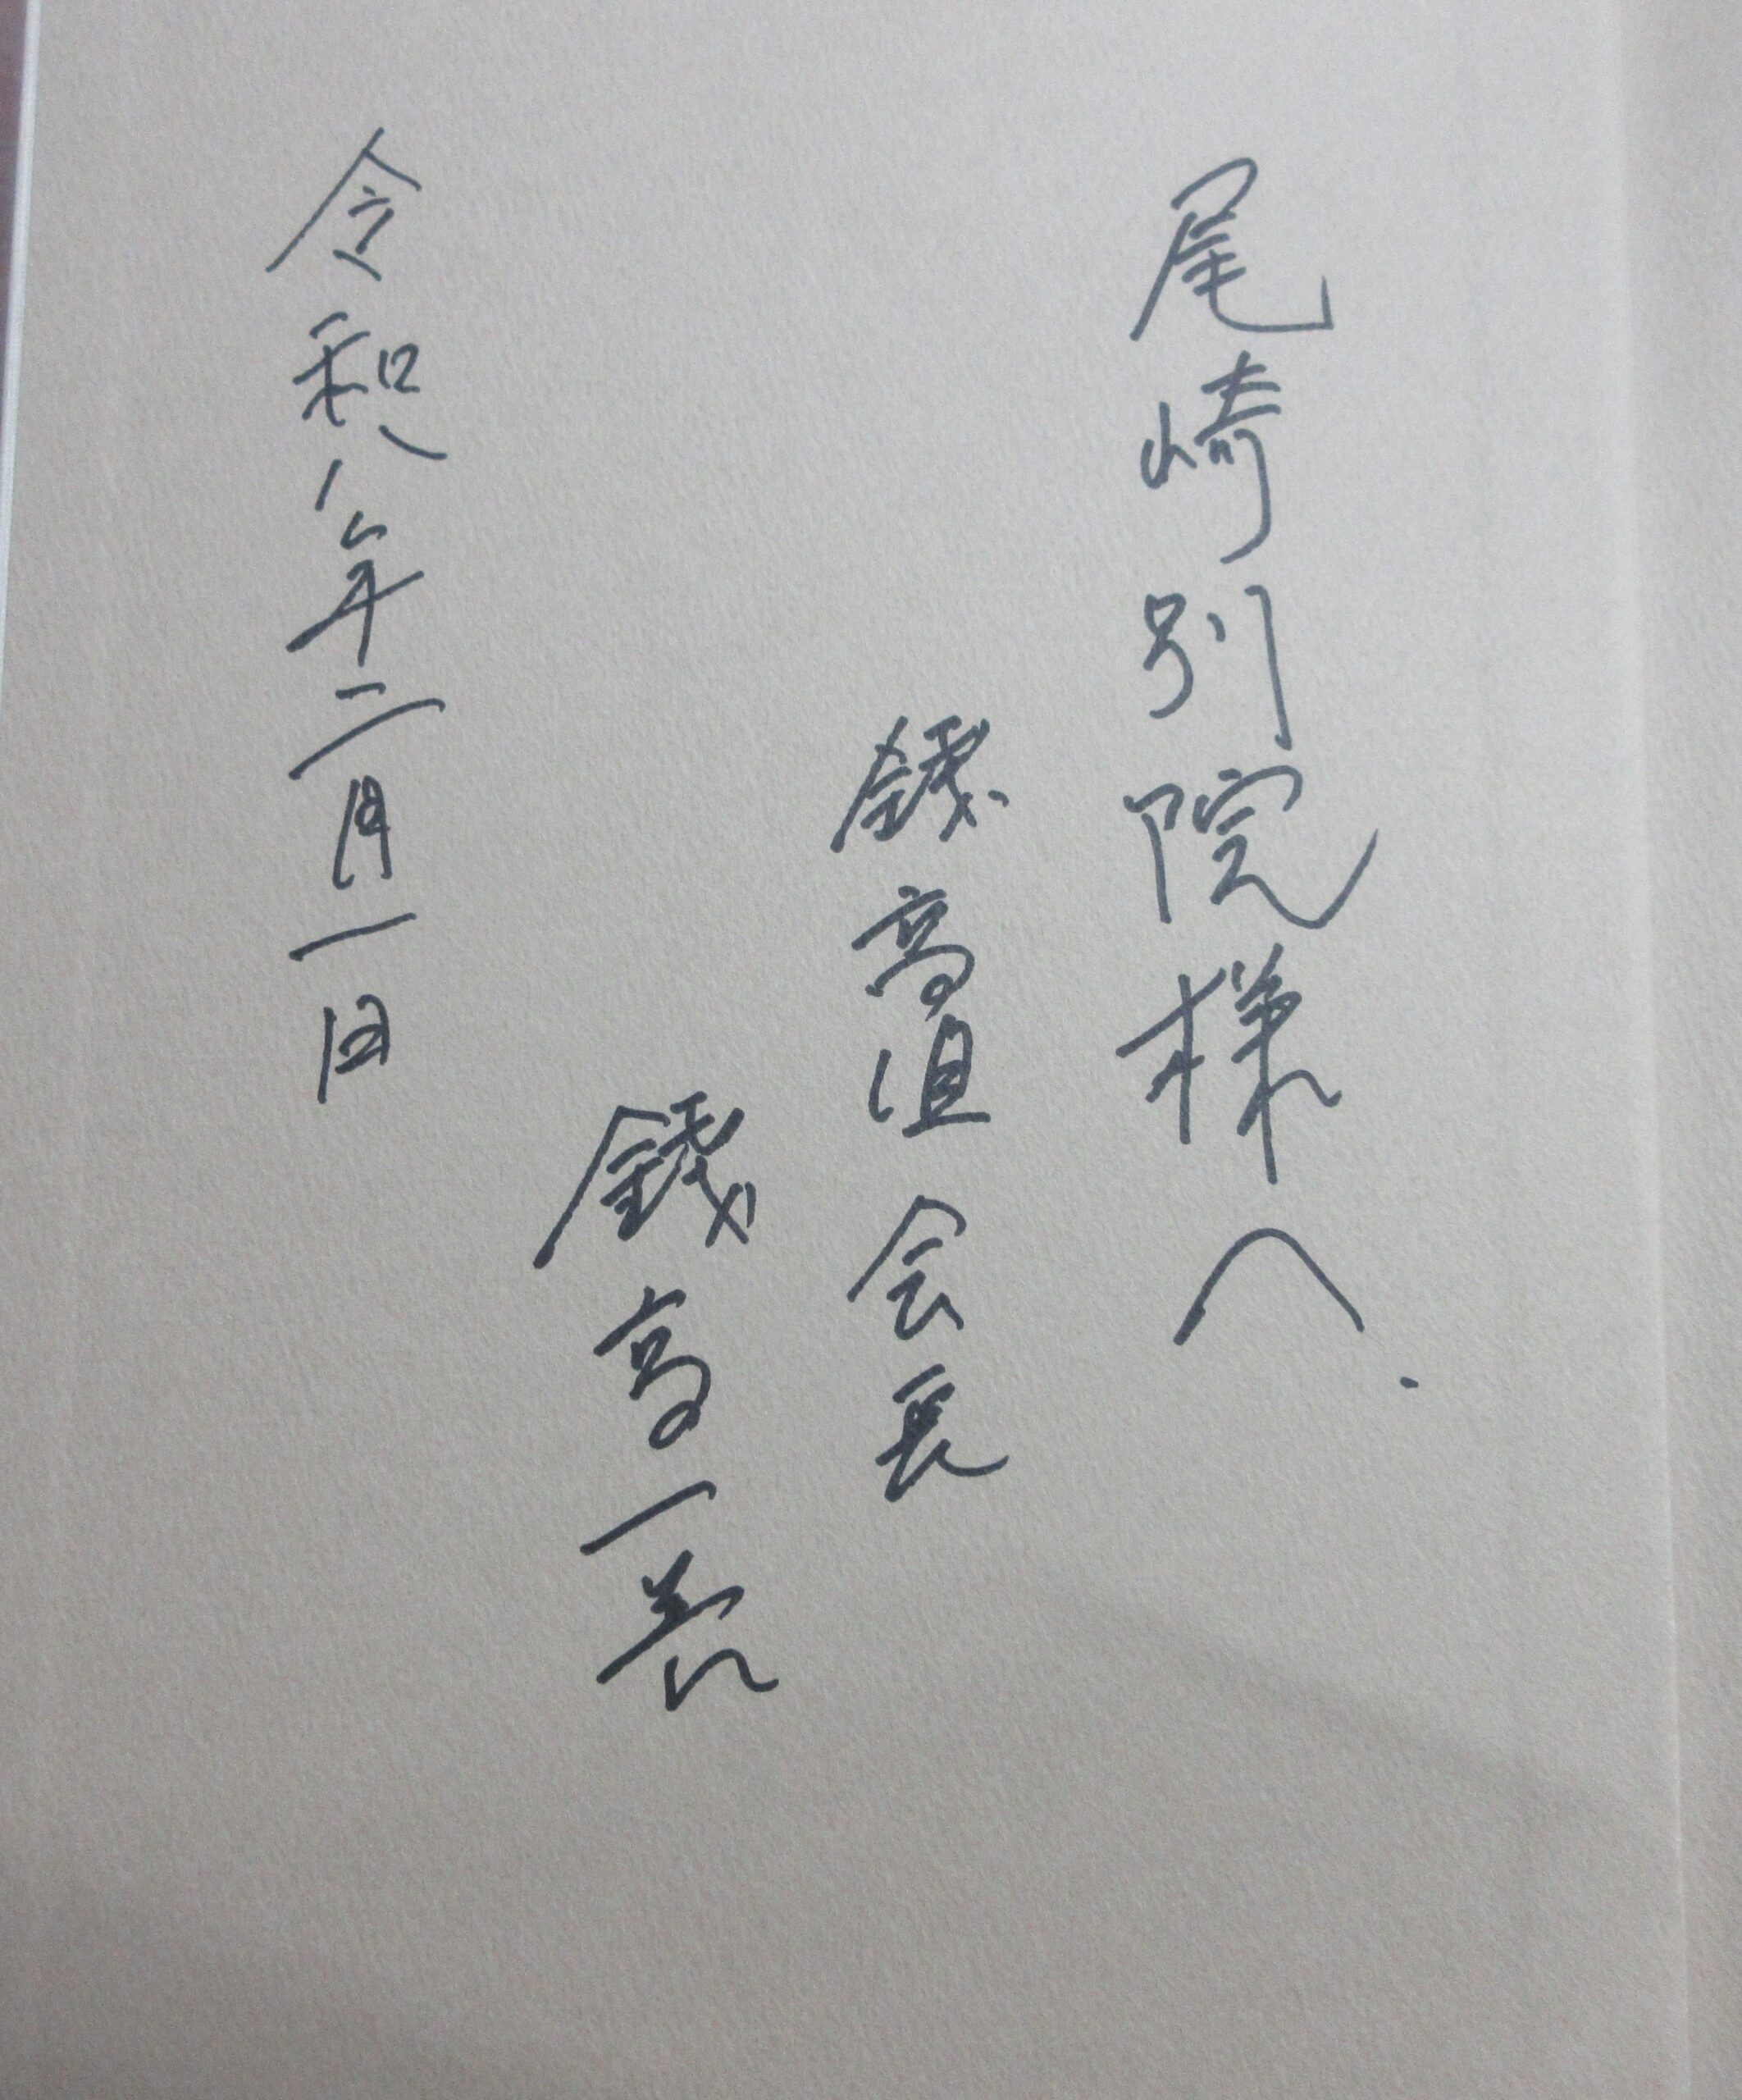 尾崎別院様へ.
銭高組会長
銭高一善
令和八年二月一日